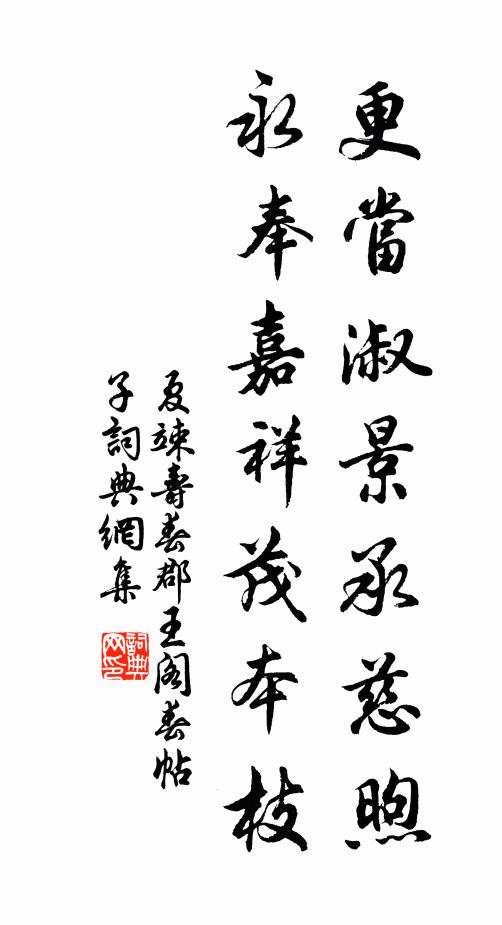 更當淑景承慈煦
永奉嘉祥茂本枝
夏竦壽春郡王閣春帖
子詞典網集
詞典网印